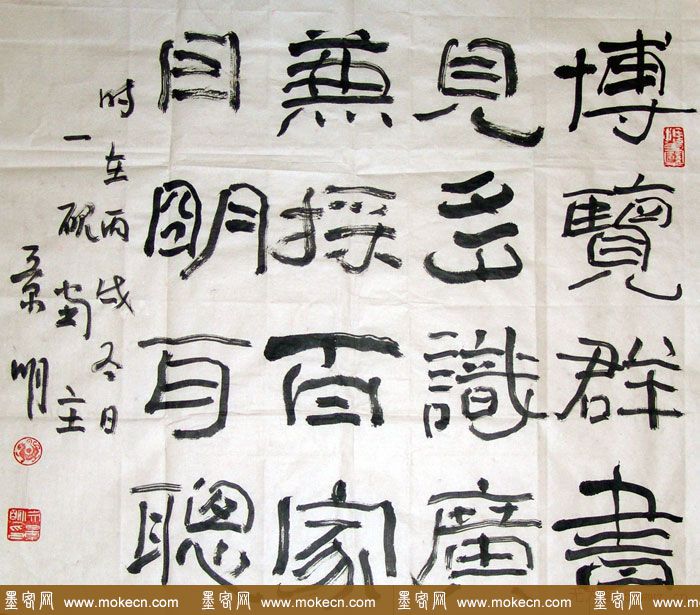 博覽群書
見多識廣
兼採百家
目明耳聰
时在丙戌冬日
一砚堂主
景明
墨客网 www.mokecn.com 墨客网 www.mokecn.com 墨客网 www.mokecn.com